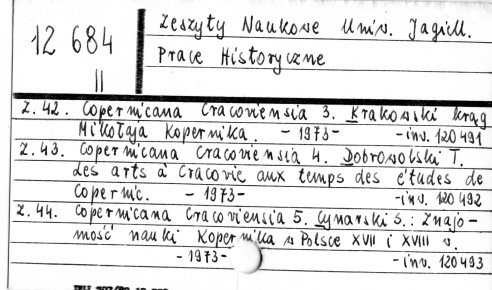 12 684
II
Zeszyty Naukowe Uniw. Jagiell.
Prace Historyczne
Z. 42. Copernicana Cracoviensia 3. Krakowski krąg
Mikołaja Kopernika. - 1973 - - inv. 120 491
Z. 43. Copernicana Cracoviensia 4. Dobrowolski T.
Les arts à Cracovie aux temps des études de
Copernic. - 1973 - - inv. 120 492
Z. 44. Copernicana Cracoviensia 5. Cynarski S.: Znajo-
mość nauki Kopernika w Polsce XVII i XVIII w.
- 1973 - - inv. 120 493